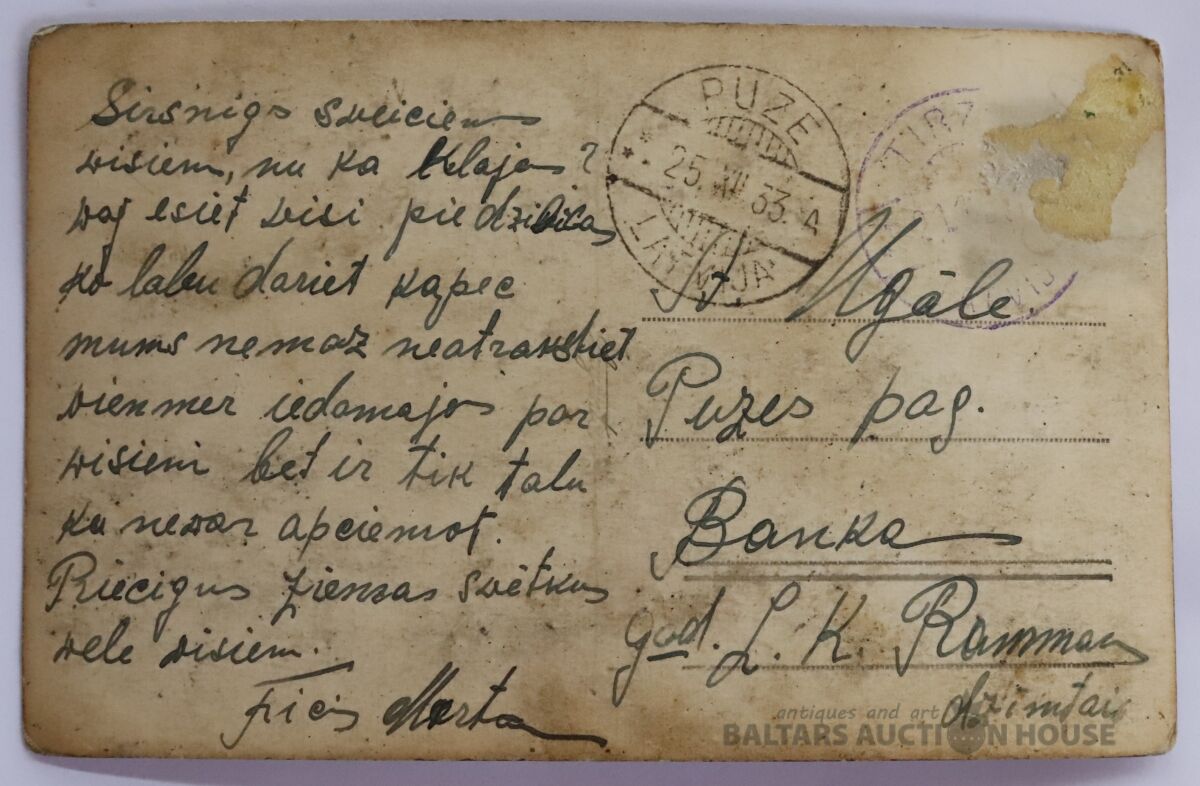 Sirsnigs sveiciens
visiem, nu ka klajas?
vaj esiet visi piedzivivas
ko labu dariet kapec
mums nemaz neatrakstiet
vienmer iedomajos par
visiem bet ir tik talu
ka nevar apciemot.
Priecigus ziemas svētkus
vele visiem.
Ficis Marta
PUZE
25. XII 33. A
LATVIJA
TIRZ
St. Ugāle.
Puzes pag.
Banka
god. L. K. Ramman
dzimtai
antiques and art
BALTARS AUCTION HOUSE